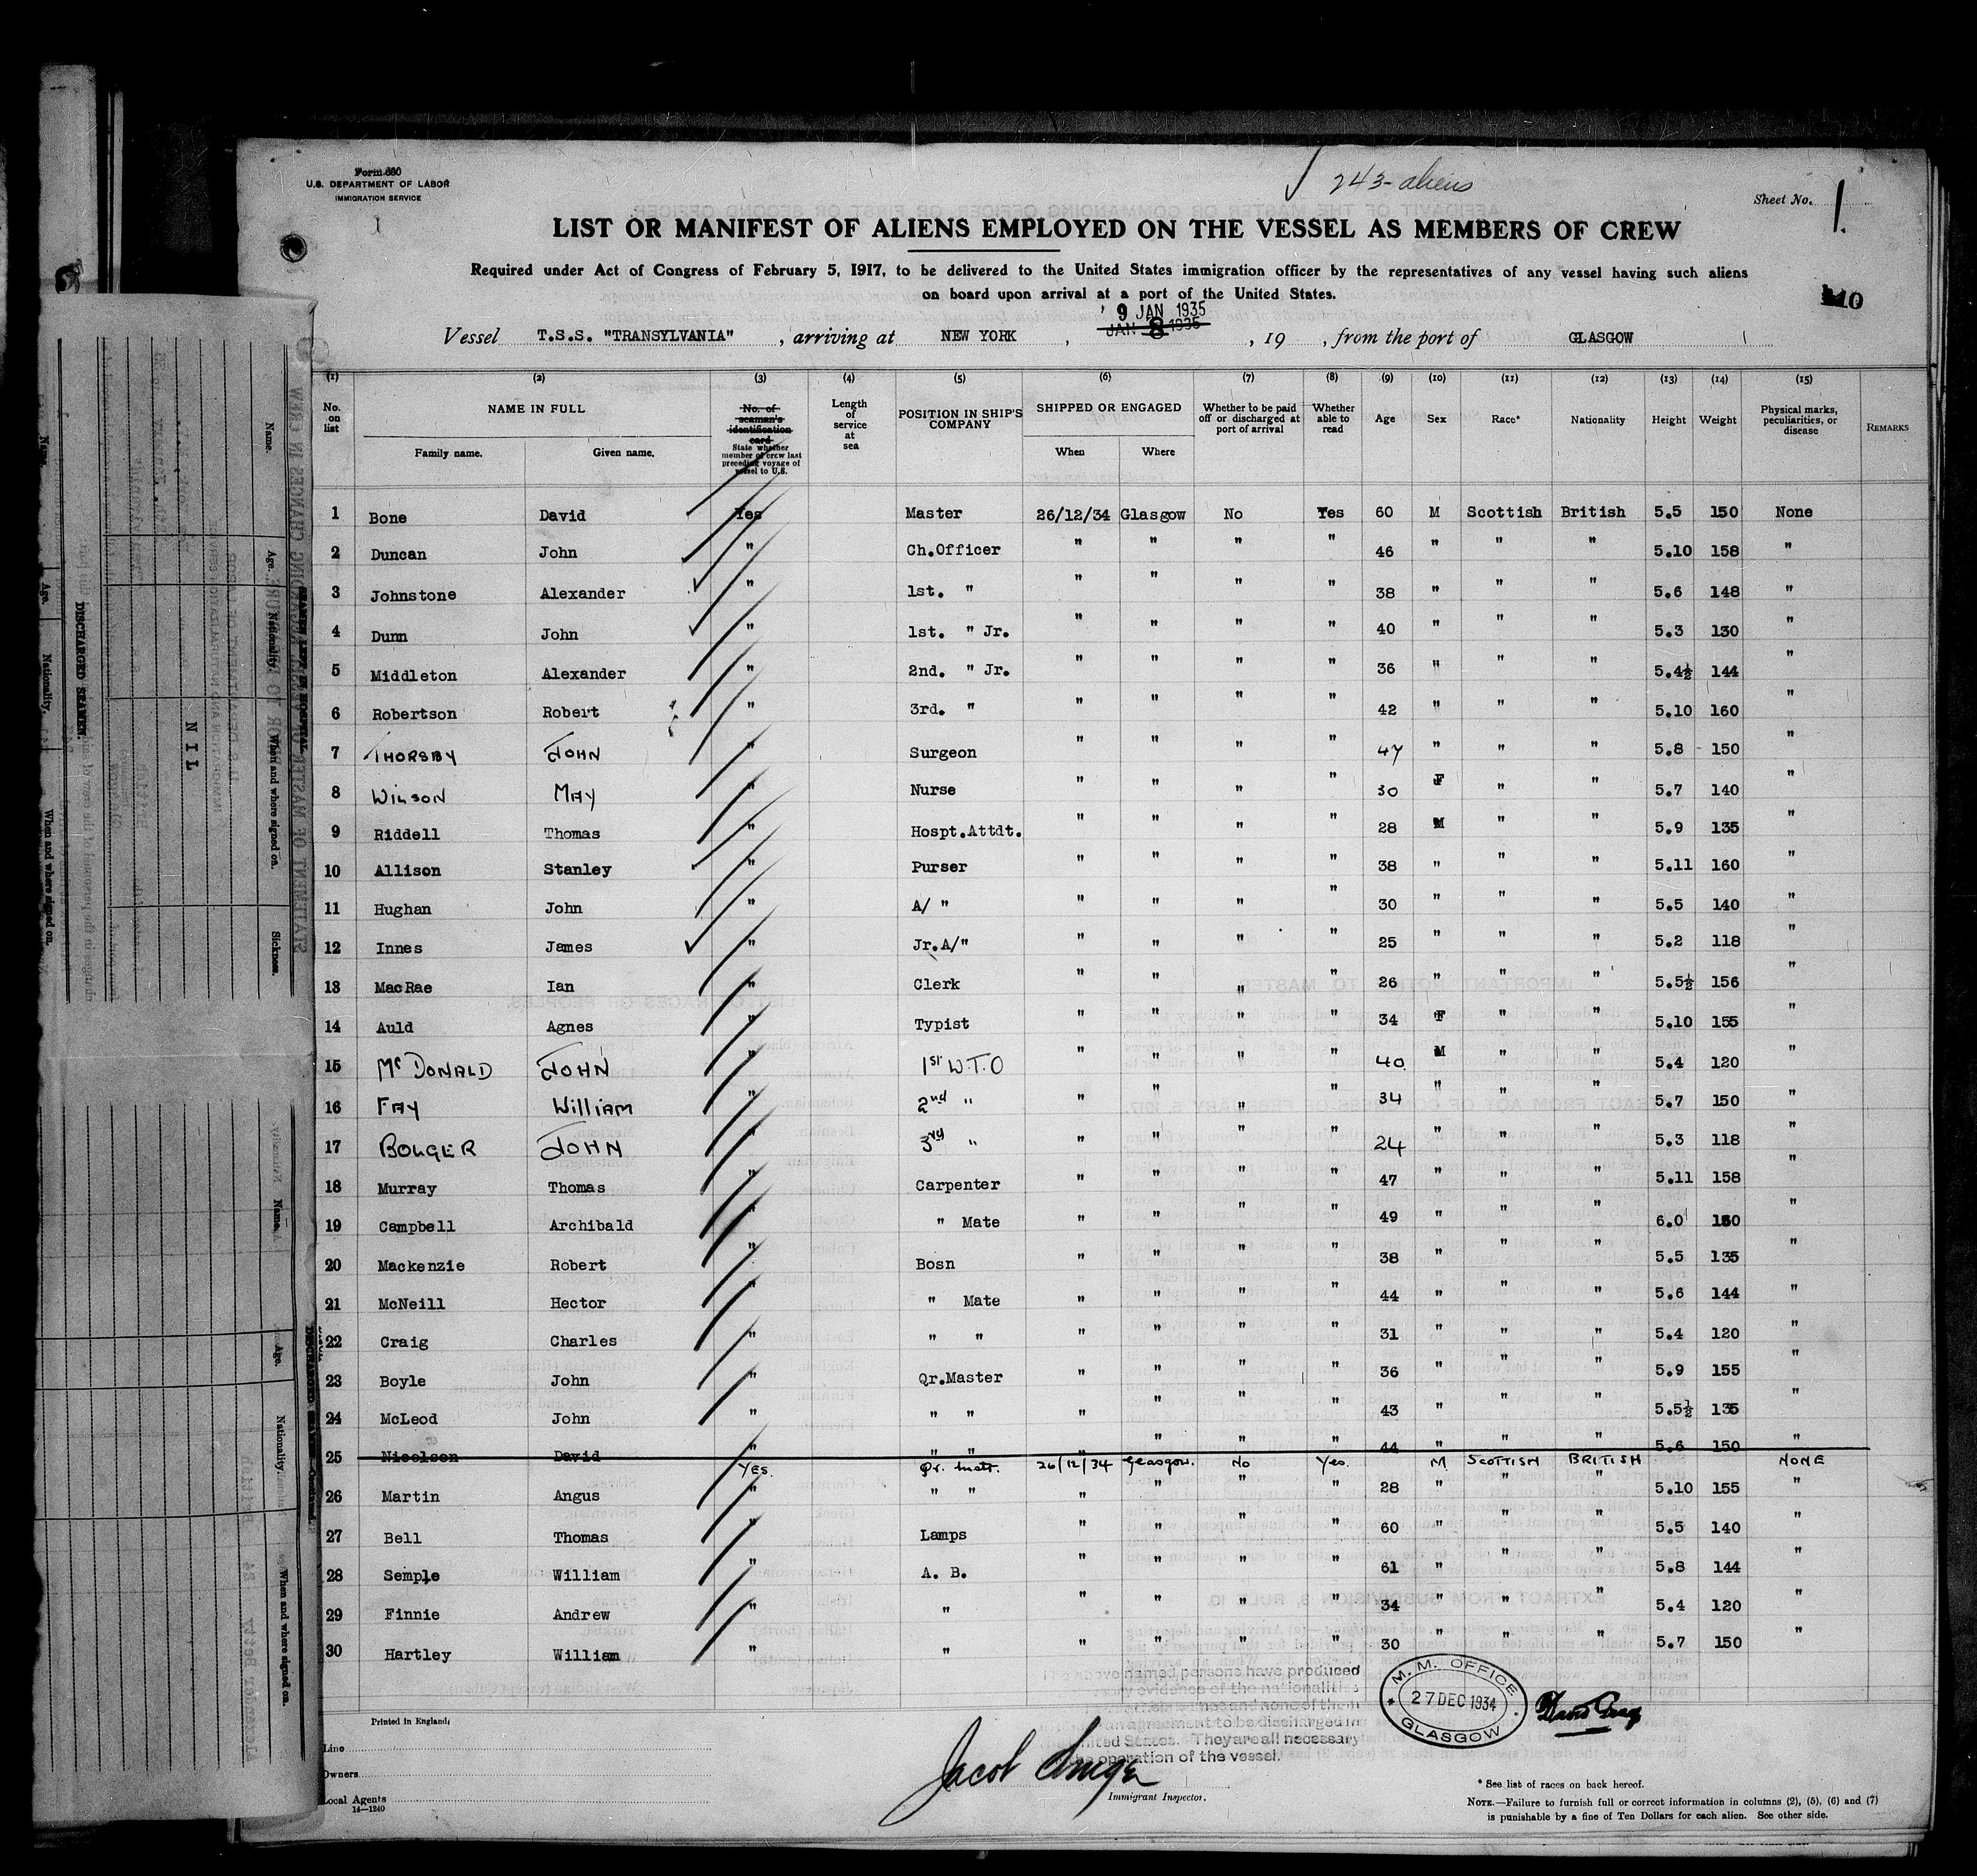 Form 680
U.S. DEPARTMENT OF LABOR
IMMIGRATION SERVICE
243 - aliens
Sheet No. 1.
LIST OR MANIFEST OF ALIENS EMPLOYED ON THE VESSEL AS MEMBERS OF CREW
Required under Act of Congress of February 5, 1917, to be delivered to the United States immigration officer by the representatives of any vessel having such aliens
on board upon arrival at a port of the United States.
10
9 JAN 1935
JAN 8 1935
Vessel T.S.S. "TRANSYLVANIA", arriving at NEW YORK, , 19 , from the port of GLASGOW
(1) (2) (3) (4) (5) (6) (7) (8) (9) (10) (11) (12) (13) (14) (15)
No. on list NAME IN FULL Family name. Given name. No. of seaman's identification card State whether member of crew last preceding voyage of vessel to U.S. Length of service at sea POSITION IN SHIP'S COMPANY SHIPPED OR ENGAGED When Where Whether to be paid off or discharged at port of arrival Whether able to read Age Sex Race* Nationality Height Weight Physical marks, peculiarities, or disease REMARKS
1 Bone David Yes Master 26/12/34 Glasgow No Yes 60 M Scottish British 5.5 150 None
2 Duncan John " Ch.Officer " " " " 46 " " " 5.10 158 "
3 Johnstone Alexander " 1st. " " " " " 38 " " " 5.6 148 "
4 Dunn John " 1st. " Jr. " " " " 40 " " " 5.3 130 "
5 Middleton Alexander " 2nd. " Jr. " " " " 36 " " " 5.4½ 144 "
6 Robertson Robert " 3rd. " " " " " 42 " " " 5.10 160 "
7 THORSBY JOHN " Surgeon " " " " 47 " " " 5.8 150 "
8 WILSON MAY " Nurse " " " " 30 F " " 5.7 140 "
9 Riddell Thomas " Hospt.Attdt. " " " " 28 M " " 5.9 135 "
10 Allison Stanley " Purser " " " " 38 " " " 5.11 160 "
11 Hughan John " A/ " " " " " 30 " " " 5.5 140 "
12 Innes James " Jr.A/" " " " " 25 " " " 5.2 118 "
13 MacRae Ian " Clerk " " " " 26 " " " 5.5½ 156 "
14 Auld Agnes " Typist " " " " 34 F " " 5.10 155 "
15 McDONALD JOHN " 1st W.T.O " " " " 40 M " " 5.4 120 "
16 FAY WILLIAM " 2nd " " " " " 34 " " " 5.7 150 "
17 BOLGER JOHN " 3rd " " " " " 24 " " " 5.3 118 "
18 Murray Thomas " Carpenter " " " " 47 " " " 5.11 158 "
19 Campbell Archibald " " Mate " " " " 49 " " " 6.0 "
20 Mackenzie Robert " Bosn " " " " 38 " " " 5.5 135 "
21 McNeill Hector " " Mate " " " " 44 " " " 5.6 144 "
22 Craig Charles " " " " " " " 31 " " " 5.4 120 "
23 Boyle John " Qr.Master " " " " 36 " " " 5.9 155 "
24 McLeod John " " " " " " " 43 " " " 5.5½ 135 "
25 Nicolson David " " " " " " " 44 " " " 5.6 150 "
YES. Qr. Mastr. 26/12/34 Glasgow. No Yes. M SCOTTISH BRITISH NONE
26 Martin Angus " " " " " " " 28 " " " 5.10 155 "
27 Bell Thomas " Lamps " " " " 60 " " " 5.5 140 "
28 Semple William " A. B. " " " " 61 " " " 5.8 144 "
29 Finnie Andrew " " " " " " 34 " " " 5.4 120 "
30 Hartley William " " " " " " 30 " " " 5.7 150 "
above named persons have produced
evidence of the nationalities
and none of them
agreement to be discharged in
United States. They are all necessary
operation of the vessel.
M. M. OFFICE
27 DEC 1934
GLASGOW
Printed in England.
Line
Owners
Local Agents
14—1240
Jacob
Immigrant Inspector.
* See list of races on back hereof.
NOTE.—Failure to furnish full or correct information in columns (2), (5), (6) and (7)
is punishable by a fine of Ten Dollars for each alien. See other side.
NIL
DISCHARGED SEAMEN.
Name.
Age.
Nationality.
When and where signed on.
Sickness.
Name.
Age.
Nationality.
When and where signed on.